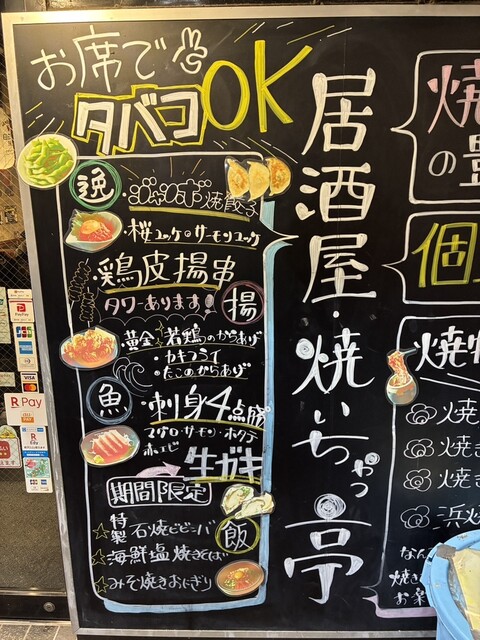 お席で
タバコOK
逸
・ジャンボ焼餃子
・桜ユッケ・サーモンユッケ
・鶏皮揚串
タワーあります!
揚
・黄金 若鶏のからあげ
・カキフライ
・たこのからあげ
魚
・刺身4点盛
マグロ・サーモン・ホタテ
赤エビ
生ガキ
期間限定
飯
☆特製 石焼ビビンバ
☆海鮮塩焼きそば
☆みそ焼きおにぎり
居酒屋・焼いちゃっ亭
焼
の
個
焼物
焼
焼き
焼き
浜焼
なん
焼き
お楽
PayPay
VISA
R Pay